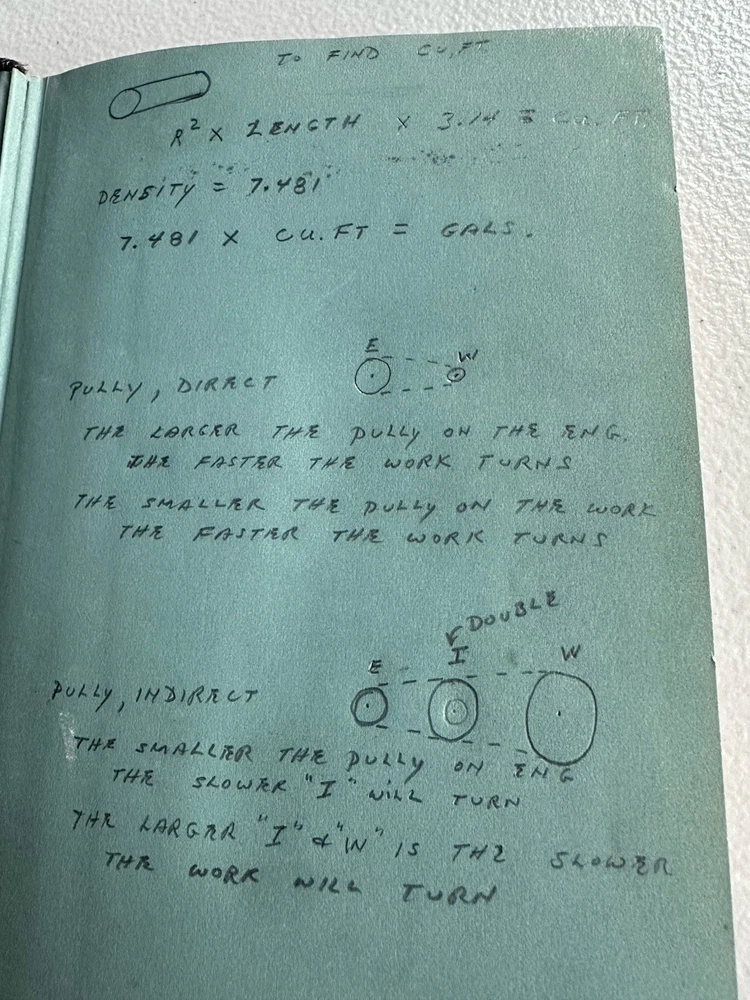 TO FIND CU.FT
R² X LENGTH X 3.14 = CU. FT.
DENSITY = 7.481
7.481 X CU.FT = GALS.
E W
PULLY, DIRECT
THE LARGER THE PULLY ON THE ENG.
THE FASTER THE WORK TURNS
THE SMALLER THE PULLY ON THE WORK
THE FASTER THE WORK TURNS
DOUBLE
E I W
PULLY, INDIRECT
THE SMALLER THE PULLY ON ENG
THE SLOWER "I" WILL TURN
THE LARGER "I" & "W" IS THE SLOWER
THE WORK WILL TURN